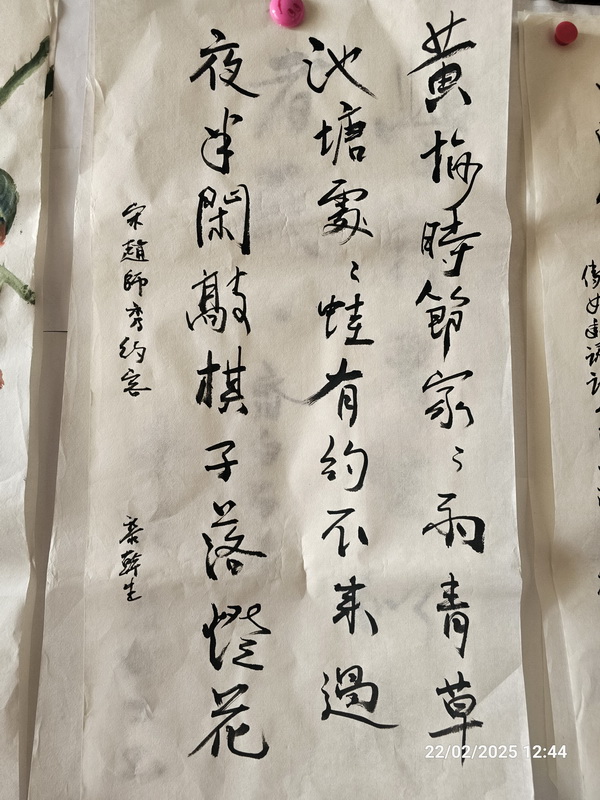 黄梅時節家〻雨青草
池塘處〻蛙有約不来過
夜半閑敲棋子落燈花
宋趙師秀約客
22/02/2025 12:44